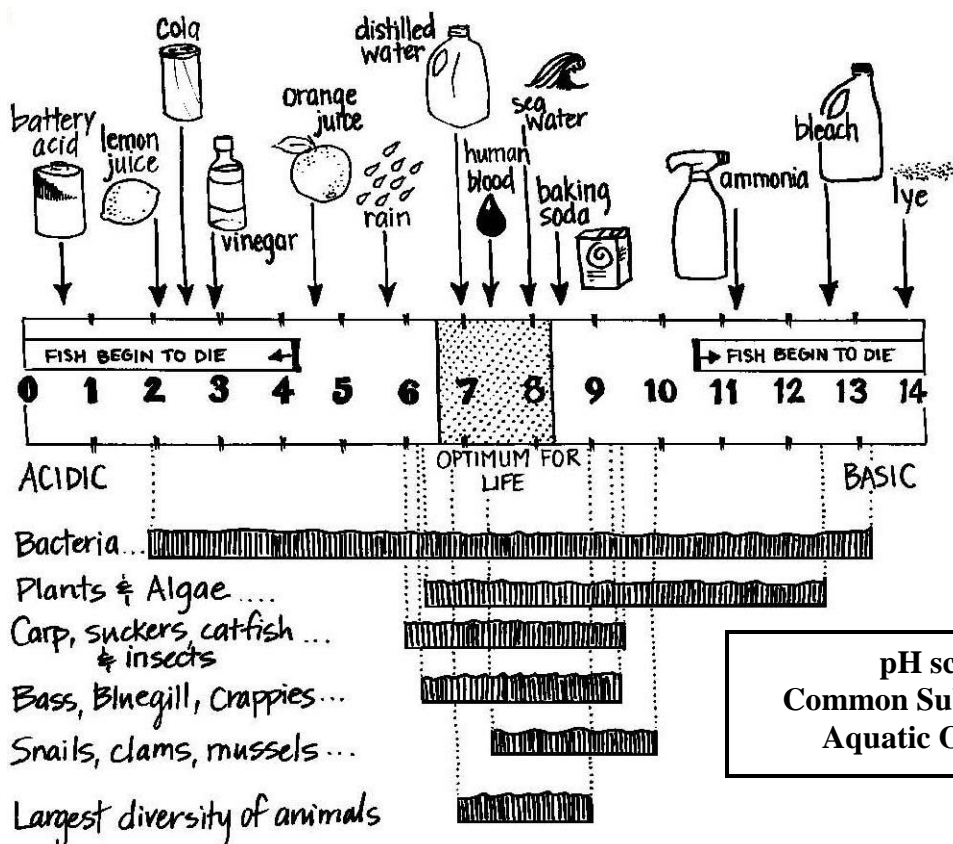 cola
battery
acid
lemon
juice
vinegar
orange
juice
rain
distilled
water
human
blood
sea
water
baking
soda
ammonia
bleach
lye
FISH BEGIN TO DIE
FISH BEGIN TO DIE
0 1 2 3 4 5 6 7 8 9 10 11 12 13 14
ACIDIC
OPTIMUM FOR
LIFE
BASIC
Bacteria...
Plants & Algae ....
Carp, suckers, catfish ...
& insects
Bass, Bluegill, Crappies...
Snails, clams, mussels ...
Largest diversity of animals
pH sc
Common Su
Aquatic O